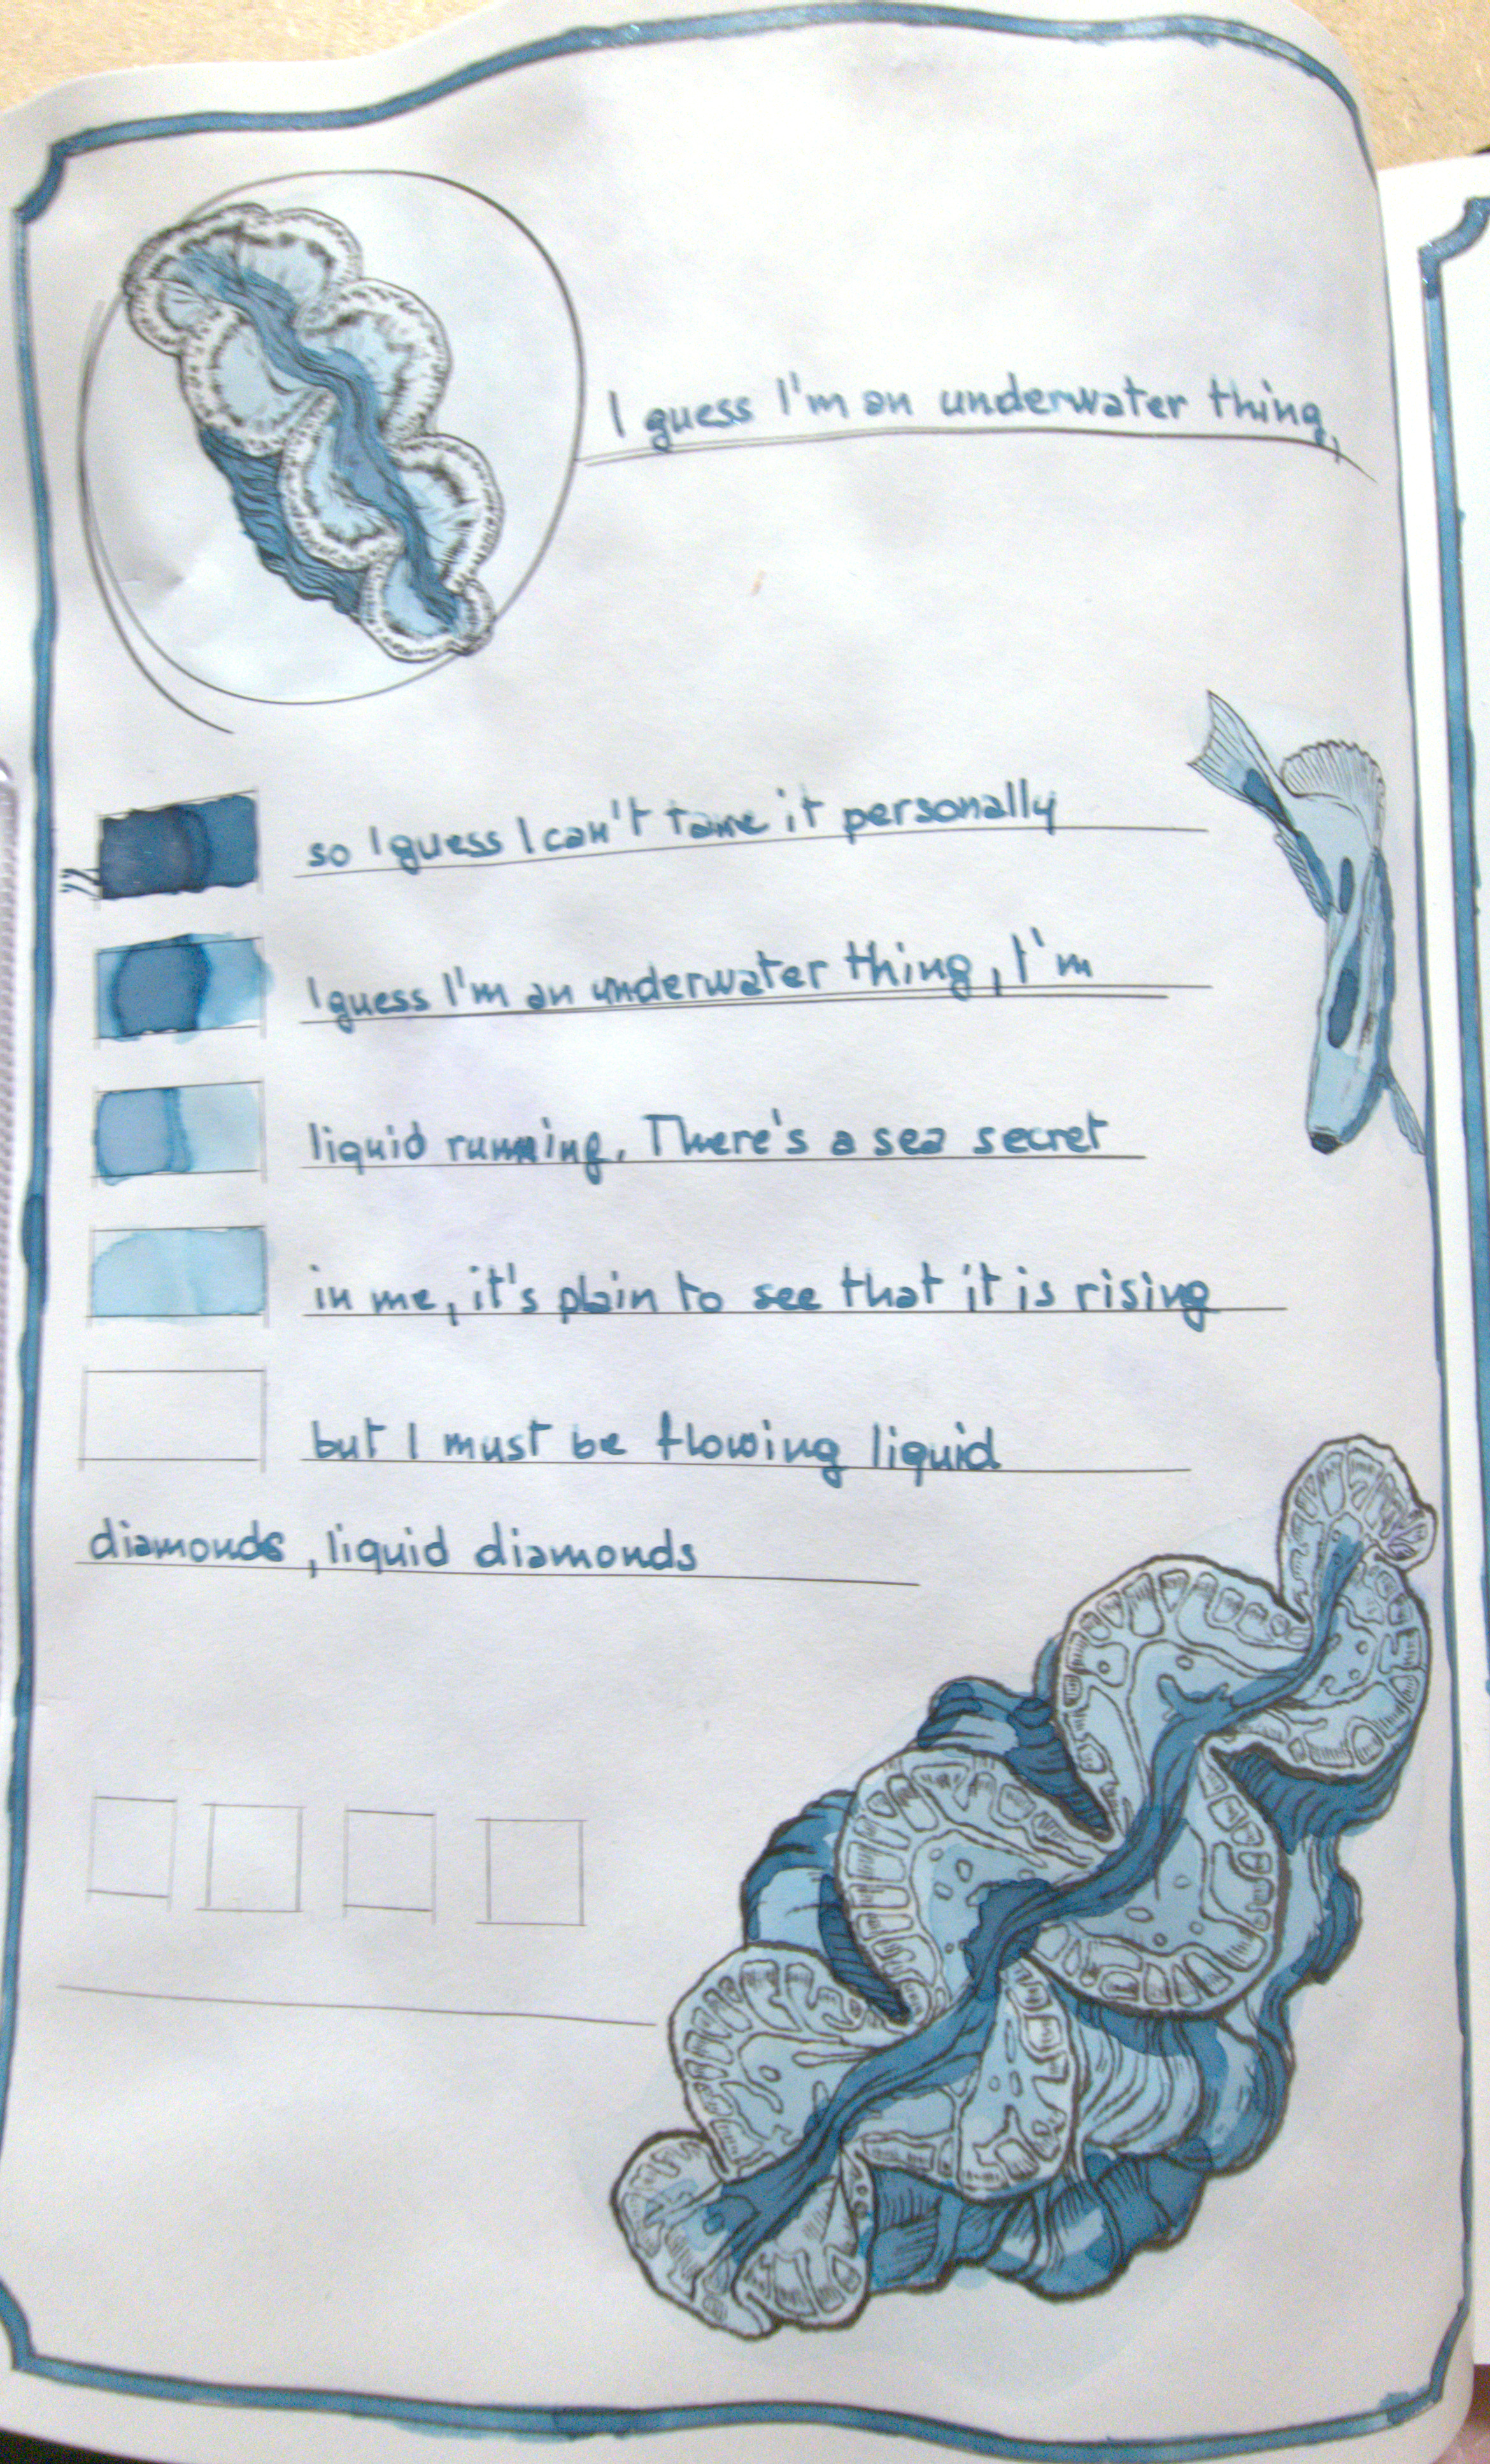 I guess I'm an underwater thing,
so I guess I can't tame it personally
I guess I'm an underwater thing, I'm
liquid running. There's a sea secret
in me, it's plain to see that it is rising
but I must be flowing liquid
diamonds, liquid diamonds